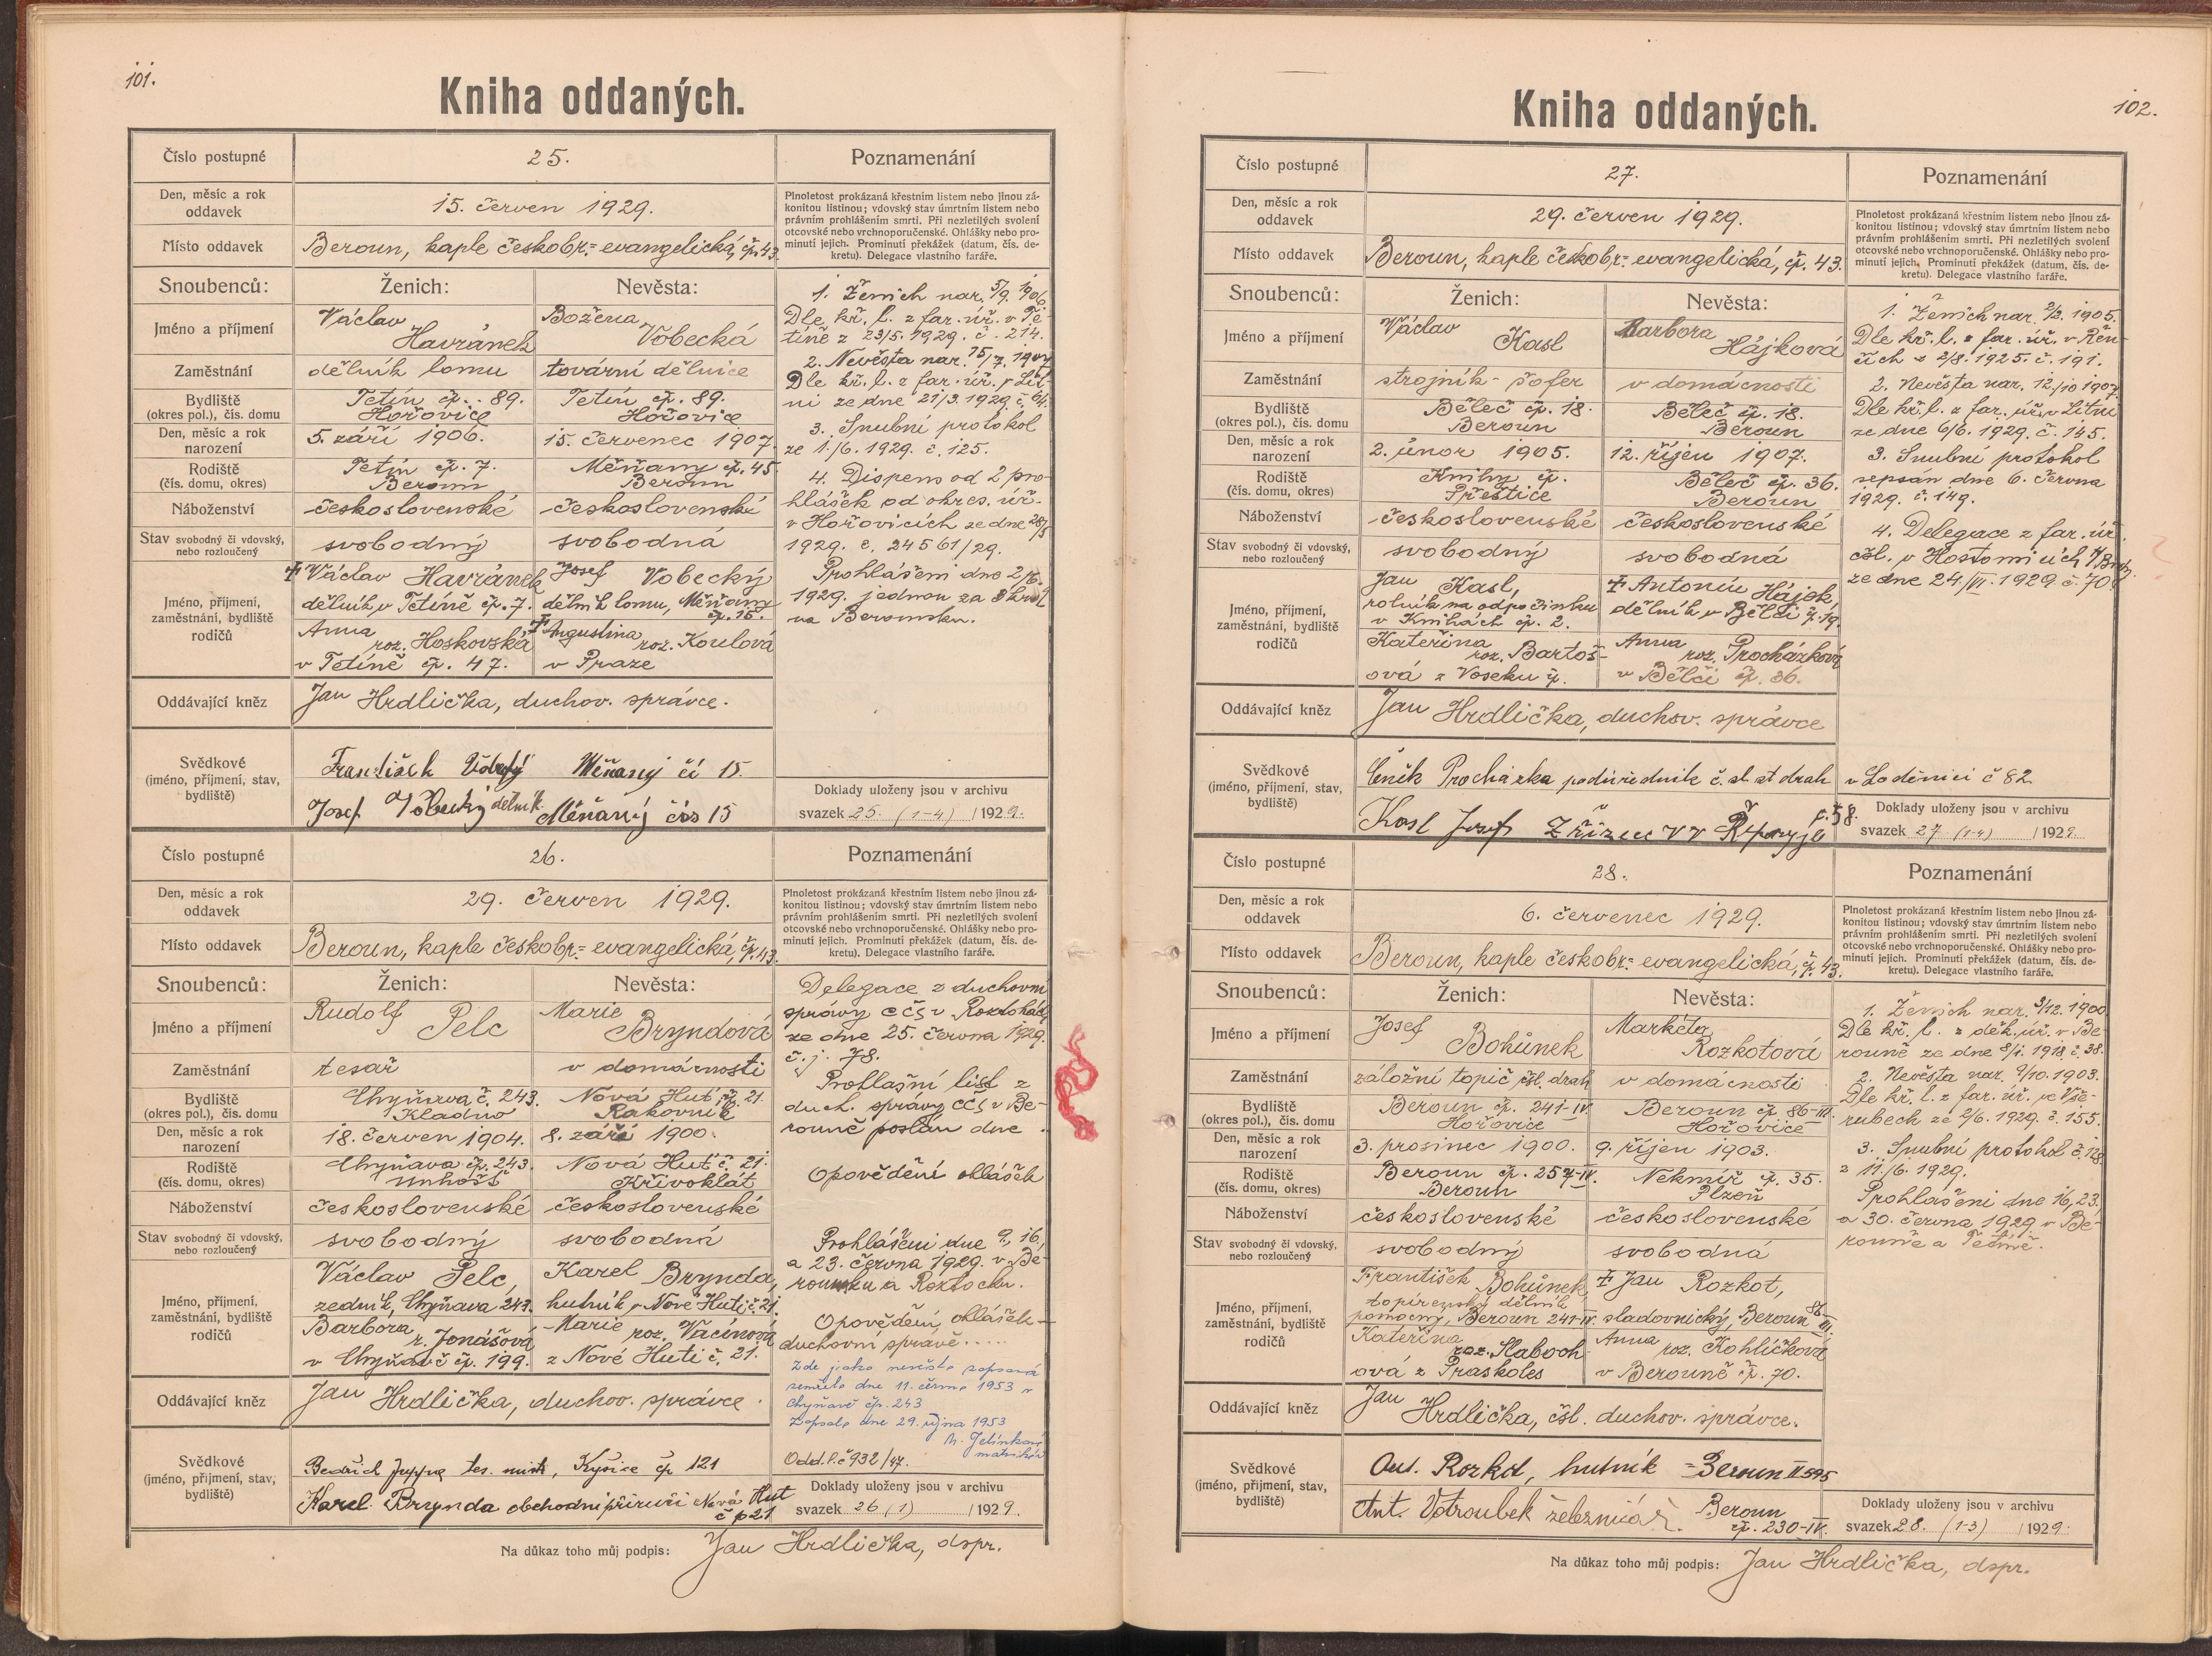 101.
Kniha oddaných.
Číslo postupné
25.
Poznamenání
Den, měsíc a rok
oddavek
15. červen 1929.
Plnoletost prokázaná křestním listem nebo jinou zá-
konitou listinou; vdovský stav úmrtním listem nebo
právním prohlášením smrti. Při nezletilých svolení
otcovské nebo vrchnoporučenské. Ohlášky nebo pro-
minutí jejich. Prominutí překážek (datum, čís. de-
kretu). Delegace vlastního faráře.
Místo oddavek
Beroun, kaple českobr.= evangelická, čp. 43.
Snoubenců:
Ženich:
Nevěsta:
Jméno a příjmení
Václav
Havránek
Božena
Vobecká
Zaměstnání
dělník lomu
tovární dělnice
Bydliště
(okres pol.), čís. domu
Tetín čp. 89.
Hořovice
Tetín čp. 89.
Hořovice
Den, měsíc a rok
narození
5. září 1906.
15. červenec 1907.
Rodiště
(čís. domu, okres)
Tetín čp. 7.
Beroun
Měňany čp. 45.
Beroun
Náboženství
československé
československé
Stav svobodný či vdovský,
nebo rozloučený
svobodný
svobodná
Jméno, příjmení,
zaměstnání, bydliště
rodičů
‡ Václav Havránek
dělník v Tetíně čp. 7.
Josef Vobecký
dělník lomu, Měňany
čp. 15.
Anna
roz. Hoskovská
v Tetíně čp. 47.
‡ Augustina
roz. Koulová
v Praze
1. Ženich nar. 5/9. 1906
Dle kř. l. z far. úř. v Te-
tíně z 23/5. 1929. č. 214.
2. Nevěsta nar. 15/7. 1907
Dle kř. l. z far. úř. v Lit-
ni ze dne 21/3. 1929. č. 64.
3. Snubní protokol
ze 1./6. 1929. č. 125.
4. Dispens od 2 pro-
hlášek od okres. úř.
v Hořovicích ze dne 28/5
1929. č. 24561/29.
Prohlášeni dne 2/6.
1929. jednou za
na Berounsku.
Oddávající kněz
Jan Hrdlička, duchov. správce.
Svědkové
(jméno, příjmení, stav,
bydliště)
František Měňany čí 15.
Josef Vobecký dělník Měňany čís 15
Doklady uloženy jsou v archivu
svazek 25. (1-4) /1929.
Číslo postupné
26.
Poznamenání
Den, měsíc a rok
oddavek
29. červen 1929.
Plnoletost prokázaná křestním listem nebo jinou zá-
konitou listinou; vdovský stav úmrtním listem nebo
právním prohlášením smrti. Při nezletilých svolení
otcovské nebo vrchnoporučenské. Ohlášky nebo pro-
minutí jejich. Prominutí překážek (datum, čís. de-
kretu). Delegace vlastního faráře.
Místo oddavek
Beroun, kaple českobr.= evangelická, čp. 43.
Snoubenců:
Ženich:
Nevěsta:
Jméno a příjmení
Rudolf
Pelc
Marie
Bryndová
Zaměstnání
tesař
v domácnosti
Bydliště
(okres pol.), čís. domu
Chyňava č. 243.
Kladno
Nová Huť, čp. 21.
Rakovník
Den, měsíc a rok
narození
18. červen 1904.
8. září 1900.
Rodiště
(čís. domu, okres)
Chyňava čp. 243.
Unhošť
Nová Huť č. 21.
Křivoklát
Náboženství
československé
československé
Stav svobodný či vdovský,
nebo rozloučený
svobodný
svobodná
Jméno, příjmení,
zaměstnání, bydliště
rodičů
Václav Pelc,
zedník, Chyňava 243.
Karel Brynda,
hutník, v Nové Huti č. 21.
Barbora
r. Jonášová
v Chyňavě čp. 199.
Marie
roz. Vacínová
z Nové Huti č. 21.
Delegace z duchovní
správy CČS v Roztokách
ze dne 25. června 1929.
č. j. 78.
Prohlašní list z
duch. správy CČS v Be-
rouně poslán dne .
Opovědění ohlášek
Prohlášeni dne 9., 16.,
a 23. června 1929. v Be-
rounku a Roztocku.
Opovědění ohlášek
duchovní správě.....
Zde jako nevěsta zapsaná
zemřela dne 11. června 1953 v
Chyňavě čp. 243
Zapsala dne 29. října 1953
M. Jelínková
matrikář
Odd. l. č 932/47.
Oddávající kněz
Jan Hrdlička, duchov. správce.
Svědkové
(jméno, příjmení, stav,
bydliště)
Bedřich tes. mistr, Kyšice čp 121
Karel Brynda obchodní příručí Nová Huť
č p 21
Doklady uloženy jsou v archivu
svazek 26 (1) /1929.
Na důkaz toho můj podpis: Jan Hrdlička, dspr.
102.
Kniha oddaných.
Číslo postupné
27.
Poznamenání
Den, měsíc a rok
oddavek
29. červen 1929.
Plnoletost prokázaná křestním listem nebo jinou zá-
konitou listinou; vdovský stav úmrtním listem nebo
právním prohlášením smrti. Při nezletilých svolení
otcovské nebo vrchnoporučenské. Ohlášky nebo pro-
minutí jejich. Prominutí překážek (datum, čís. de-
kretu). Delegace vlastního faráře.
Místo oddavek
Beroun, kaple českobr.= evangelická, čp. 43.
Snoubenců:
Ženich:
Nevěsta:
Jméno a příjmení
Václav
Kasl
Barbora
Hájková
Zaměstnání
strojník - šofer
v domácnosti
Bydliště
(okres pol.), čís. domu
Běleč čp. 18.
Beroun
Běleč čp. 18.
Beroun
Den, měsíc a rok
narození
2. únor 1905.
12. říjen 1907.
Rodiště
(čís. domu, okres)
Knihy čp.
Přeštice
Běleč čp. 36.
Beroun
Náboženství
československé
československé
Stav svobodný či vdovský,
nebo rozloučený
svobodný
svobodná
Jméno, příjmení,
zaměstnání, bydliště
rodičů
Jan Kasl,
rolník na odpočinku
v Knihách čp. 2.
‡ Antonín Hájek
dělník v Bělči č. 19.
Kateřina
roz. Bartoš-
ová z Voseku čp.
Anna
roz. Procházková
v Bělči čp. 36.
1. Ženich nar. 2/2. 1905.
Dle kř. l. z far. úř. v Řen-
čích z 2/8. 1925. č. 191.
2. Nevěsta nar. 12./10 1907.
Dle kř. l. z far. úř. v Litni
ze dne 6/6. 1929. č. 145.
3. Snubní protokol
sepsán dne 6. června
1929. č. 149.
4. Delegace z far. úř.
čsl. v Hostomicích
ze dne 24./VI. 1929 č. 70.
Oddávající kněz
Jan Hrdlička, duchov. správce
Svědkové
(jméno, příjmení, stav,
bydliště)
Čeněk Procházka podúředník č. sl. st drah v Loděnici č 82
Kasl Josef Zřízenec v Řeporyje č. 58.
Doklady uloženy jsou v archivu
svazek 27 (1-4) /1929.
Číslo postupné
28.
Poznamenání
Den, měsíc a rok
oddavek
6. červenec 1929.
Plnoletost prokázaná křestním listem nebo jinou zá-
konitou listinou; vdovský stav úmrtním listem nebo
právním prohlášením smrti. Při nezletilých svolení
otcovské nebo vrchnoporučenské. Ohlášky nebo pro-
minutí jejich. Prominutí překážek (datum, čís. de-
kretu). Delegace vlastního faráře.
Místo oddavek
Beroun, kaple českobr.= evangelická, č. 43.
Snoubenců:
Ženich:
Nevěsta:
Jméno a příjmení
Josef
Bohůnek
Markéta
Rozkotová
Zaměstnání
záložní topič čsl. drah
v domácnosti
Bydliště
(okres pol.), čís. domu
Beroun čp. 241-IV.
Hořovice
Beroun čp. 86-III.
Hořovice
Den, měsíc a rok
narození
3. prosinec 1900.
9. říjen 1903.
Rodiště
(čís. domu, okres)
Beroun čp. 257-IV.
Beroun
Nekmíř čp. 35.
Plzeň
Náboženství
československé
československé
Stav svobodný či vdovský,
nebo rozloučený
svobodný
svobodná
Jméno, příjmení,
zaměstnání, bydliště
rodičů
František Bohůnek,
dělník
pomocný, Beroun 241-IV.
‡ Jan Rozkot,
sladovnický, Beroun 86-III.
Kateřina
roz. Slaboch-
ová z Praskoles
Anna
roz. Kohlíčková
v Berouně čp. 70.
1. Ženich nar. 3/12. 1900
Dle kř. l. z děk. úř. v Be-
rouně ze dne 8/1. 1918. č. 38.
2. Nevěsta nar. 9/10. 1903.
Dle kř. l. z far. úř. ve Vše-
rubech ze 2/6. 1929. č. 155.
3. Snubní protokol č. 128
z 11./6. 1929.
Prohlášeni dne 16, 23.
a 30. června 1929 v Be-
rouně a
Oddávající kněz
Jan Hrdlička, čsl. duchov. správce.
Svědkové
(jméno, příjmení, stav,
bydliště)
Ant. Rozkot, hutník - Beroun II 595
Ant. Votroubek železničář. Beroun
čp. 230-IV.
Doklady uloženy jsou v archivu
svazek 28. (1-3) /1929.
Na důkaz toho můj podpis: Jan Hrdlička, dspr.